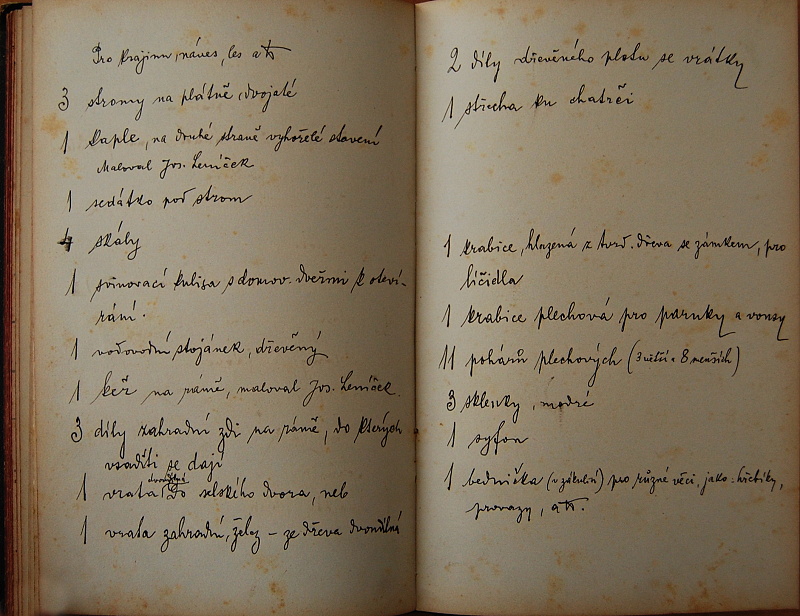 Pro krajinu, náves, les atd.
3 stromy na plátně, dvojaté
1 kaple, na druhé straně vyhořelé stavení
Maloval Jos. Leníček
1 sedátko pod strom
4 skály
1 svinovací kulisa s domov. dveřmi k oteví-
rání.
1 vodovodní stojánek, dřevěný
1 keř na rámě, maloval Jos. Leníček.
3 díly zahradní zdi na rámě, do kterých
vsaditi se dají
1 vrata do selského dvora, neb
1 vrata zahradní, želez – ze dřeva dvoudílná
2 díly dřevěného plotu se vrátky
1 střecha ku chatrči
1 krabice, hlazená z tvrd. dřeva se zámkem, pro
líčidla
1 krabice plechová pro paruky a vousy
11 pohárů plechových (3 větší a 8 menších)
3 sklenky, modré
1 syfon
1 bednička (v zákulisí) pro různé věci, jako: hřebíky,
provazy, atd.